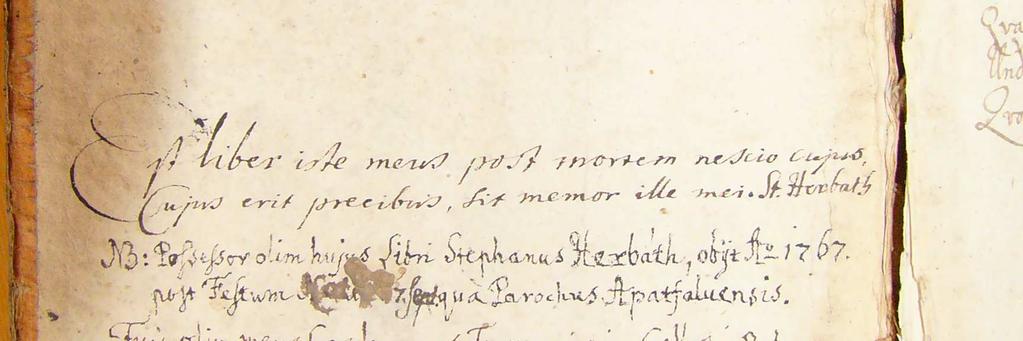 Est liber iste meus, post mortem nescio cujus,
Cujus erit precibus, sit memor ille mei. St. Herbath
NB: Possessor olim hujus Libri Stephanus Herbáth, obijt Aō 1767.
post Festum quà Parochus Apatfaluensis.
Fui olim